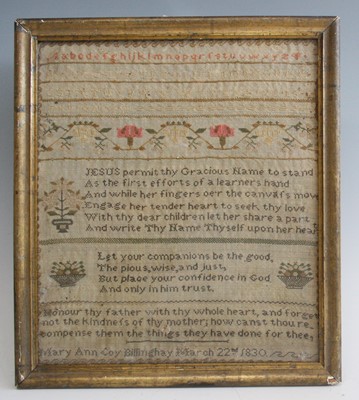 abcdefghijklmnopqrstuvwxyz&
JESUS permit thy Gracious Name to stand
As the first efforts of a learner's hand
And while her fingers oer the canvass mov
Engage her tender heart to seek thy love
With thy dear children let her share a part
And write Thy Name Thyself upon her hea
Let your companions be the good,
The pious, wise, and just,
But place your confidence in God
And only in him trust.
Honour thy father with thy whole heart, and forge
not the kindness of thy mother; how canst thou re
compense them the things they have done for thee,
Mary Ann Coy Billinghay March 22nd 1830